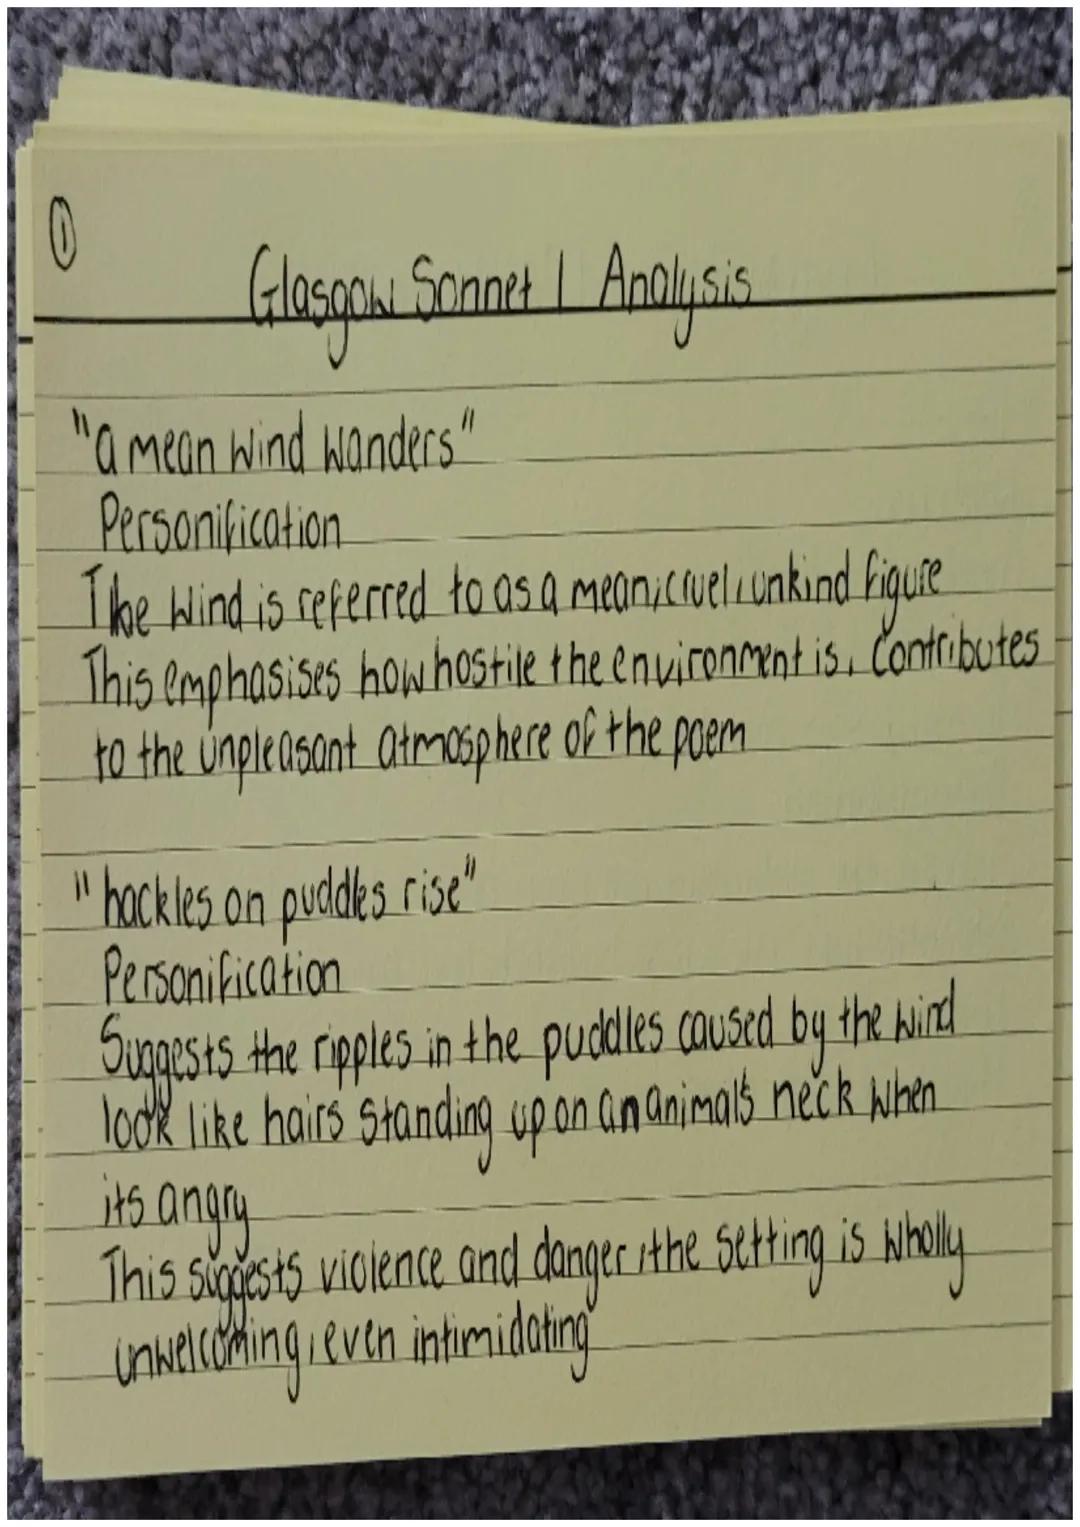 ①
Glasgow Sonnet 1 Analysis
"a mean wind wanders"
Personification
The wind is referred to as a mean, cruel, unkind figure
This emphasises how hostile the environment is. Contributes
to the unpleasant atmosphere of the poem
"hackles on puddles rise"
Personification
Suggests the ripples in the puddles caused by the wind
look like hairs standing up on an animal's neck when
its angry
This suggests violence and danger, the setting is wholly
unwelcoming, even intimidating